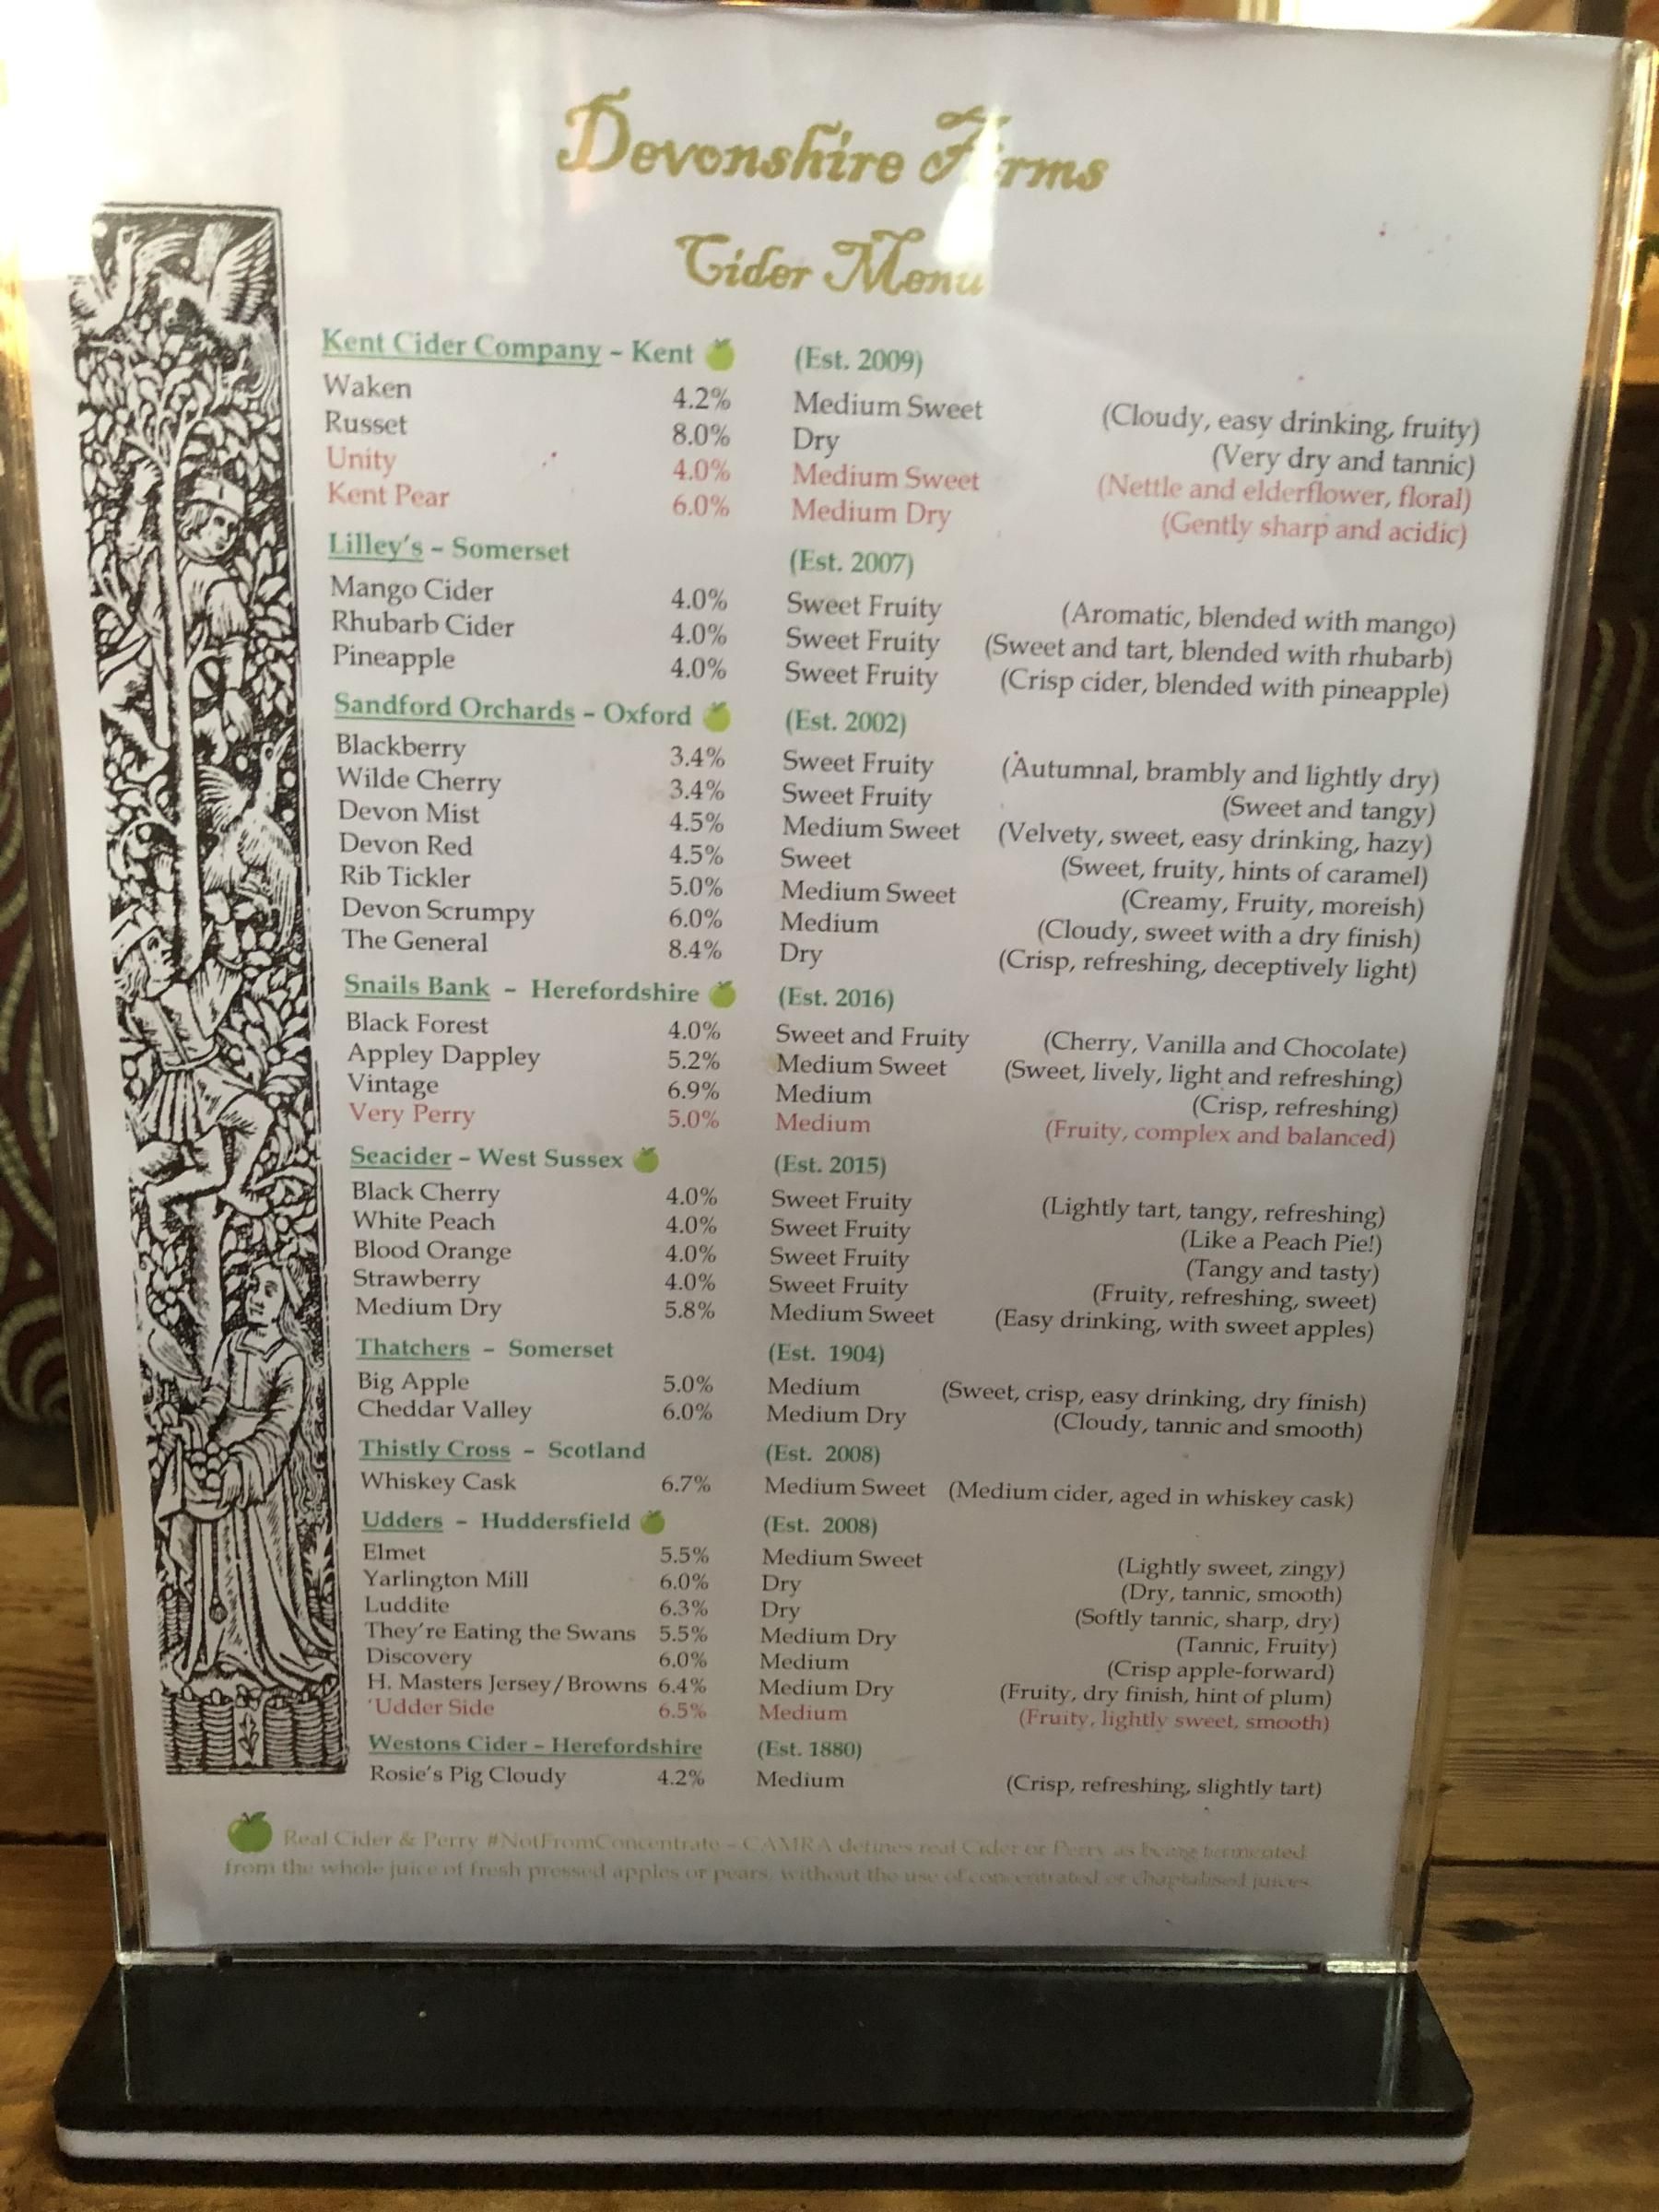 Devonshire Arms
Cider Menu
Kent Cider Company – Kent (Est. 2009)
Waken 4.2% Medium Sweet (Cloudy, easy drinking, fruity)
Russet 8.0% Dry (Very dry and tannic)
Unity 4.0% Medium Sweet (Nettle and elderflower, floral)
Kent Pear 6.0% Medium Dry (Gently sharp and acidic)
Lilley's – Somerset (Est. 2007)
Mango Cider 4.0% Sweet Fruity (Aromatic, blended with mango)
Rhubarb Cider 4.0% Sweet Fruity (Sweet and tart, blended with rhubarb)
Pineapple 4.0% Sweet Fruity (Crisp cider, blended with pineapple)
Sandford Orchards – Oxford (Est. 2002)
Blackberry 3.4% Sweet Fruity (Autumnal, brambly and lightly dry)
Wilde Cherry 3.4% Sweet Fruity (Sweet and tangy)
Devon Mist 4.5% Medium Sweet (Velvety, sweet, easy drinking, hazy)
Devon Red 4.5% Sweet (Sweet, fruity, hints of caramel)
Rib Tickler 5.0% Medium Sweet (Creamy, Fruity, moreish)
Devon Scrumpy 6.0% Medium (Cloudy, sweet with a dry finish)
The General 8.4% Dry (Crisp, refreshing, deceptively light)
Snails Bank – Herefordshire (Est. 2016)
Black Forest 4.0% Sweet and Fruity (Cherry, Vanilla and Chocolate)
Appley Dappley 5.2% Medium Sweet (Sweet, lively, light and refreshing)
Vintage 6.9% Medium (Crisp, refreshing)
Very Perry 5.0% Medium (Fruity, complex and balanced)
Seacider – West Sussex (Est. 2015)
Black Cherry 4.0% Sweet Fruity (Lightly tart, tangy, refreshing)
White Peach 4.0% Sweet Fruity (Like a Peach Pie!)
Blood Orange 4.0% Sweet Fruity (Tangy and tasty)
Strawberry 4.0% Sweet Fruity (Fruity, refreshing, sweet)
Medium Dry 5.8% Medium Sweet (Easy drinking, with sweet apples)
Thatchers – Somerset (Est. 1904)
Big Apple 5.0% Medium (Sweet, crisp, easy drinking, dry finish)
Cheddar Valley 6.0% Medium Dry (Cloudy, tannic and smooth)
Thistly Cross – Scotland (Est. 2008)
Whiskey Cask 6.7% Medium Sweet (Medium cider, aged in whiskey cask)
Udders – Huddersfield (Est. 2008)
Elmet 5.5% Medium Sweet (Lightly sweet, zingy)
Yarlington Mill 6.0% Dry (Dry, tannic, smooth)
Luddite 6.3% Dry (Softly tannic, sharp, dry)
They're Eating the Swans 5.5% Medium Dry (Tannic, Fruity)
Discovery 6.0% Medium (Crisp apple-forward)
H. Masters Jersey/Browns 6.4% Medium Dry (Fruity, dry finish, hint of plum)
'Udder Side 6.5% Medium (Fruity, lightly sweet, smooth)
Westons Cider – Herefordshire (Est. 1880)
Rosie's Pig Cloudy 4.2% Medium (Crisp, refreshing, slightly tart)
Real Cider & Perry #NotFromConcentrate – CAMRA defines real Cider or Perry as being fermented
from the whole juice of fresh pressed apples or pears, without the use of concentrated or chaptalised juices.